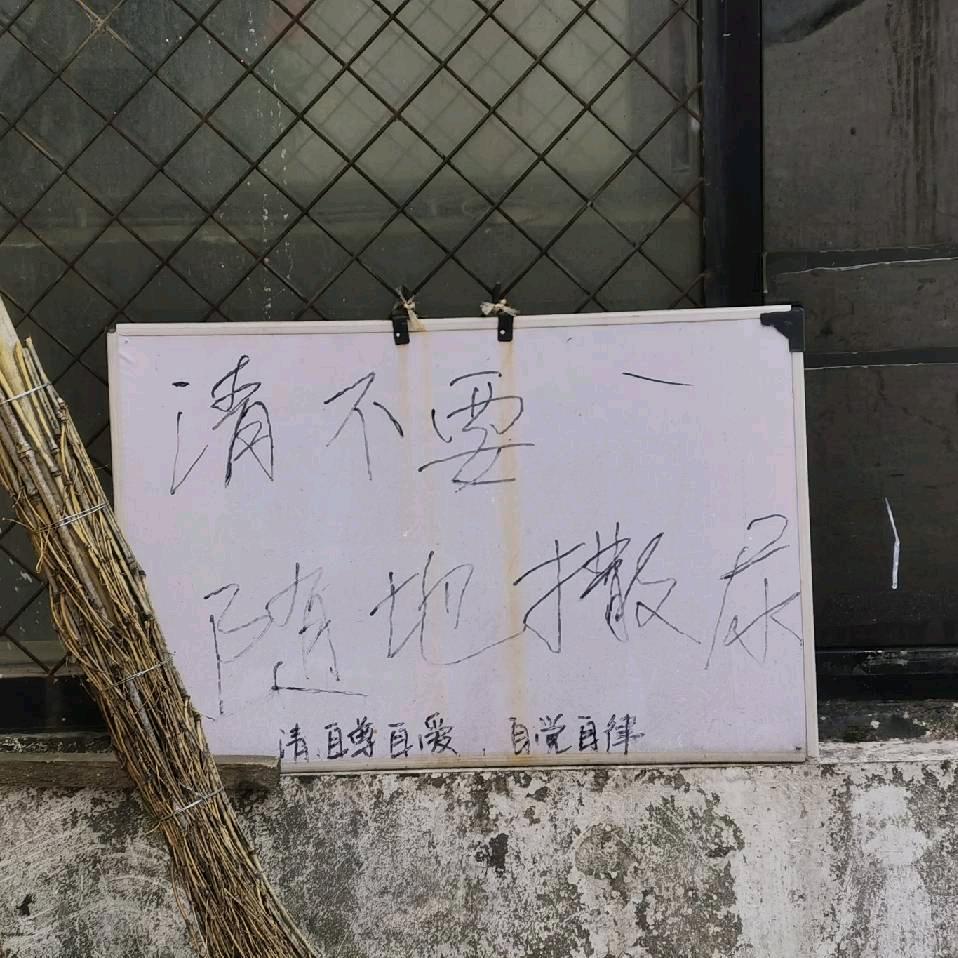 请不要
随地撒尿
请自尊自爱、自觉自律